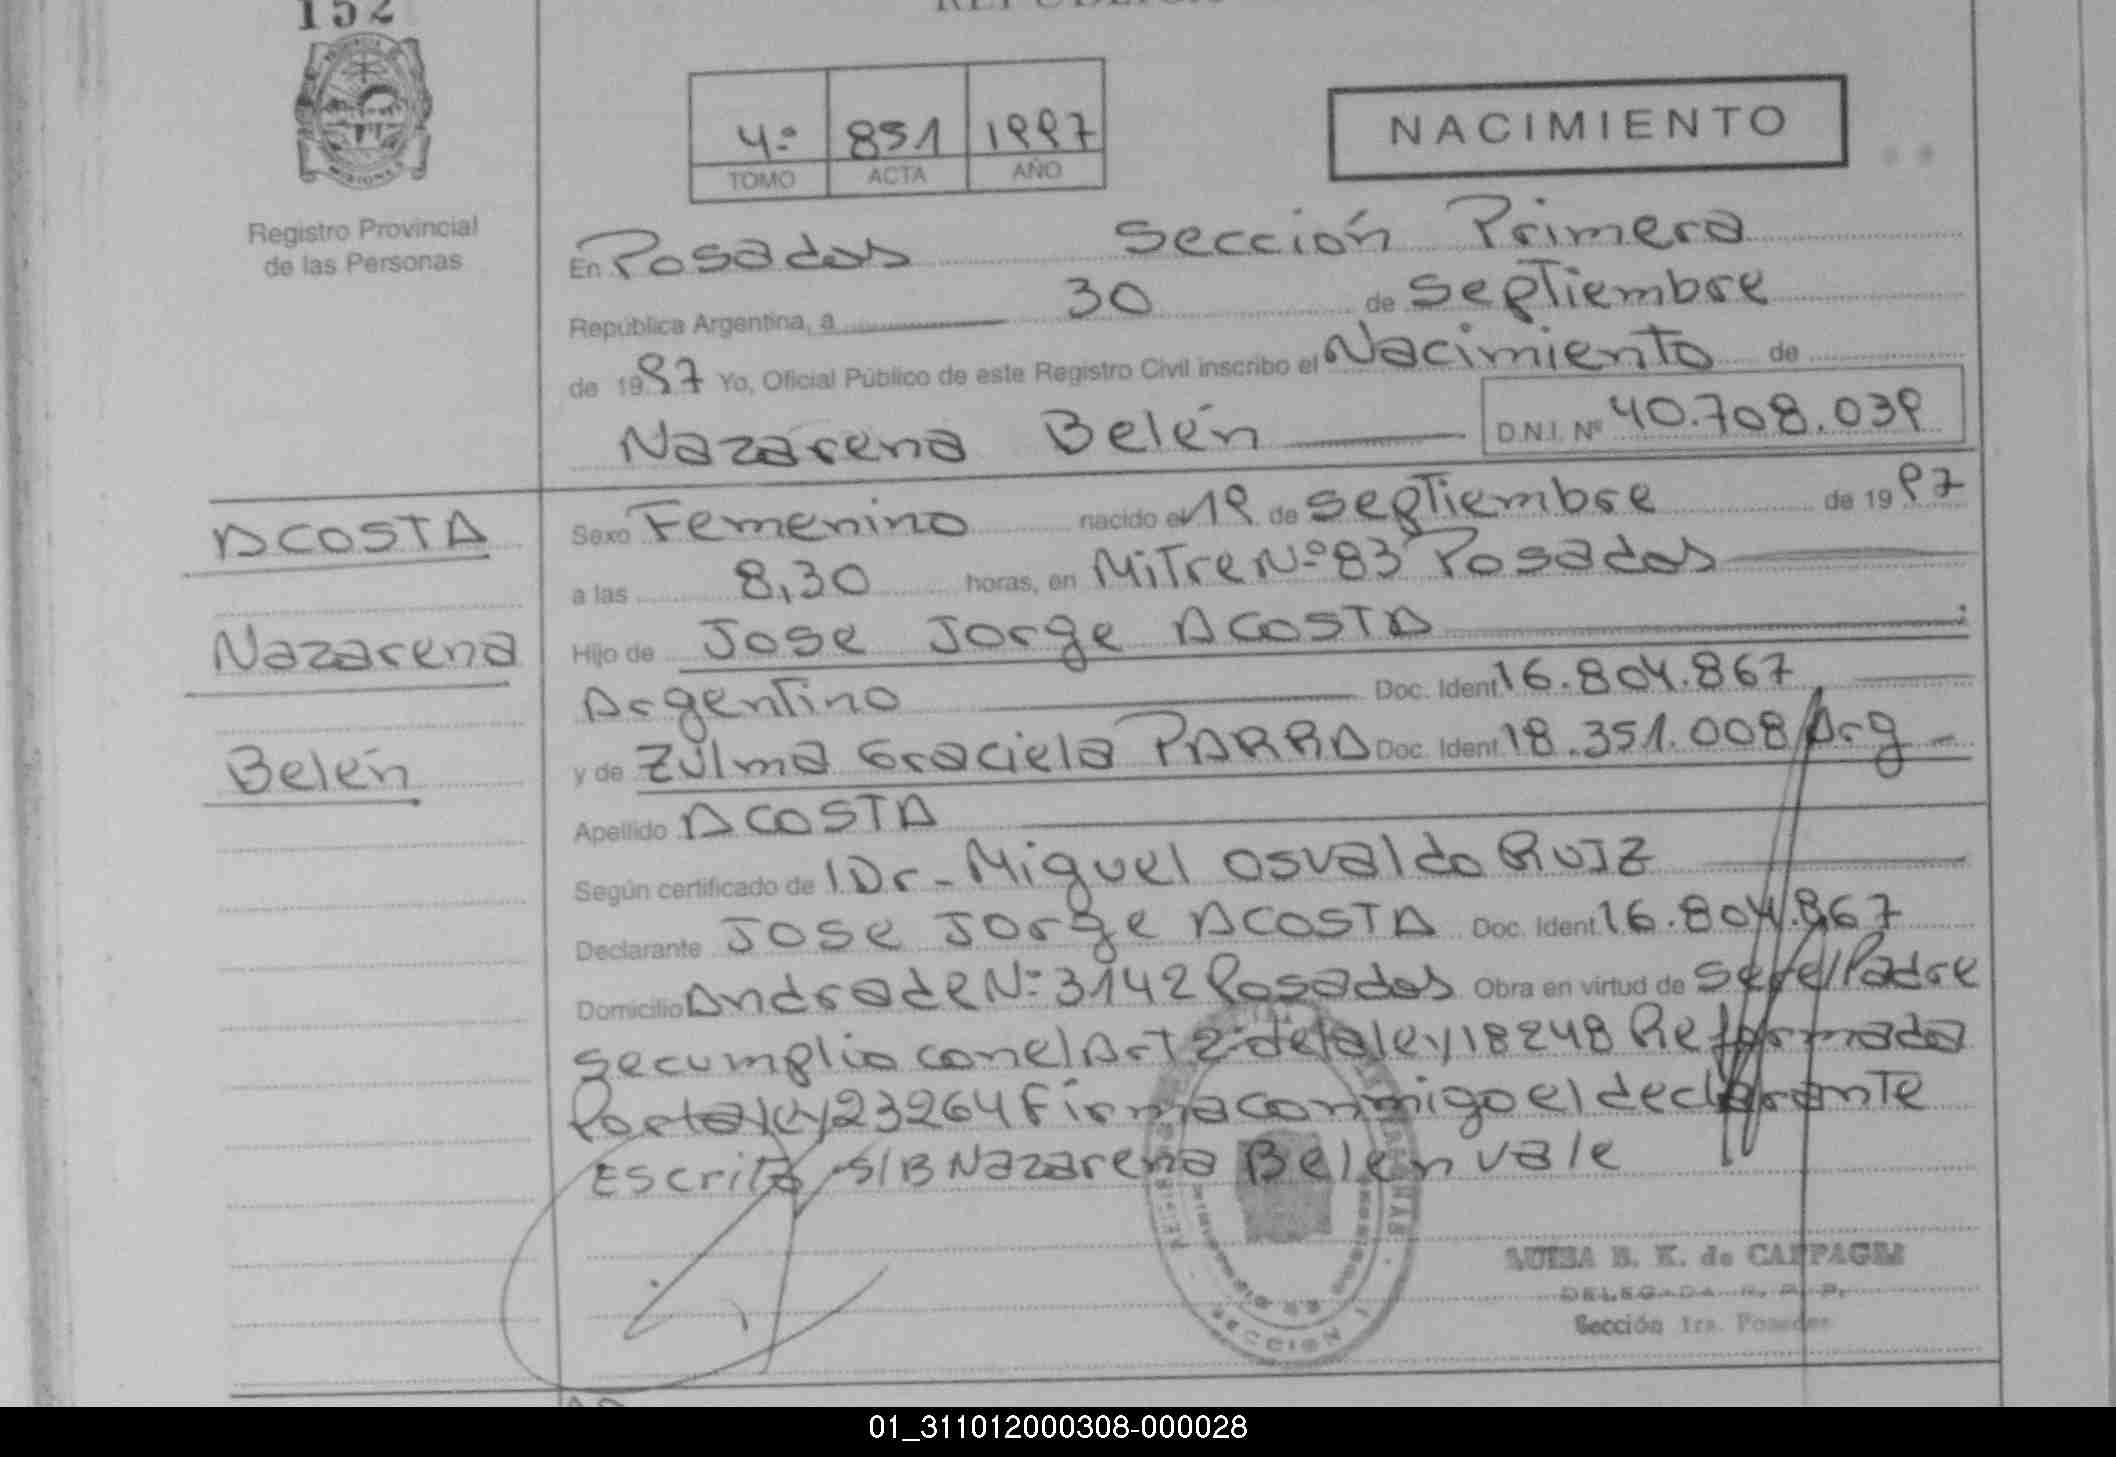 152
REPUBLICA
4º 851 1997
TOMO ACTA AÑO
NACIMIENTO
Registro Provincial
de las Personas
En Posadas Sección Primera
República Argentina, a 30 de Septiembre
de 1997 Yo, Oficial Público de este Registro Civil inscribo el Nacimiento de
Nazarena Belén D.N.I. Nº 40.708.039
ACOSTA
Nazarena
Belén
Sexo Femenino nacido el 19 de Septiembre de 1997
a las 8,30 horas, en Mitre Nº 83 Posadas
Hijo de Jose Jorge ACOSTA
Argentino Doc. Ident 16.804.867
y de Zulma Graciela PARRA Doc. Ident 18.351.008 Arg
Apellido ACOSTA
Según certificado de Dr. Miguel Osvaldo RUIZ
Declarante Jose Jorge ACOSTA Doc. Ident 16.804.867
Domicilio Andrade Nº 3142 Posadas Obra en virtud de Ser el Padre
Se cumplio con el Art 2º de la ley 18248 Reformada
Por la ley 23264 Firma conmigo el declarante
Escrito S/B Nazarena Belén vale
SECCION 1
LUISA B. K. de
DELEGADA R. P. P.
Sección 1ra. Posadas
01_311012000308-000028